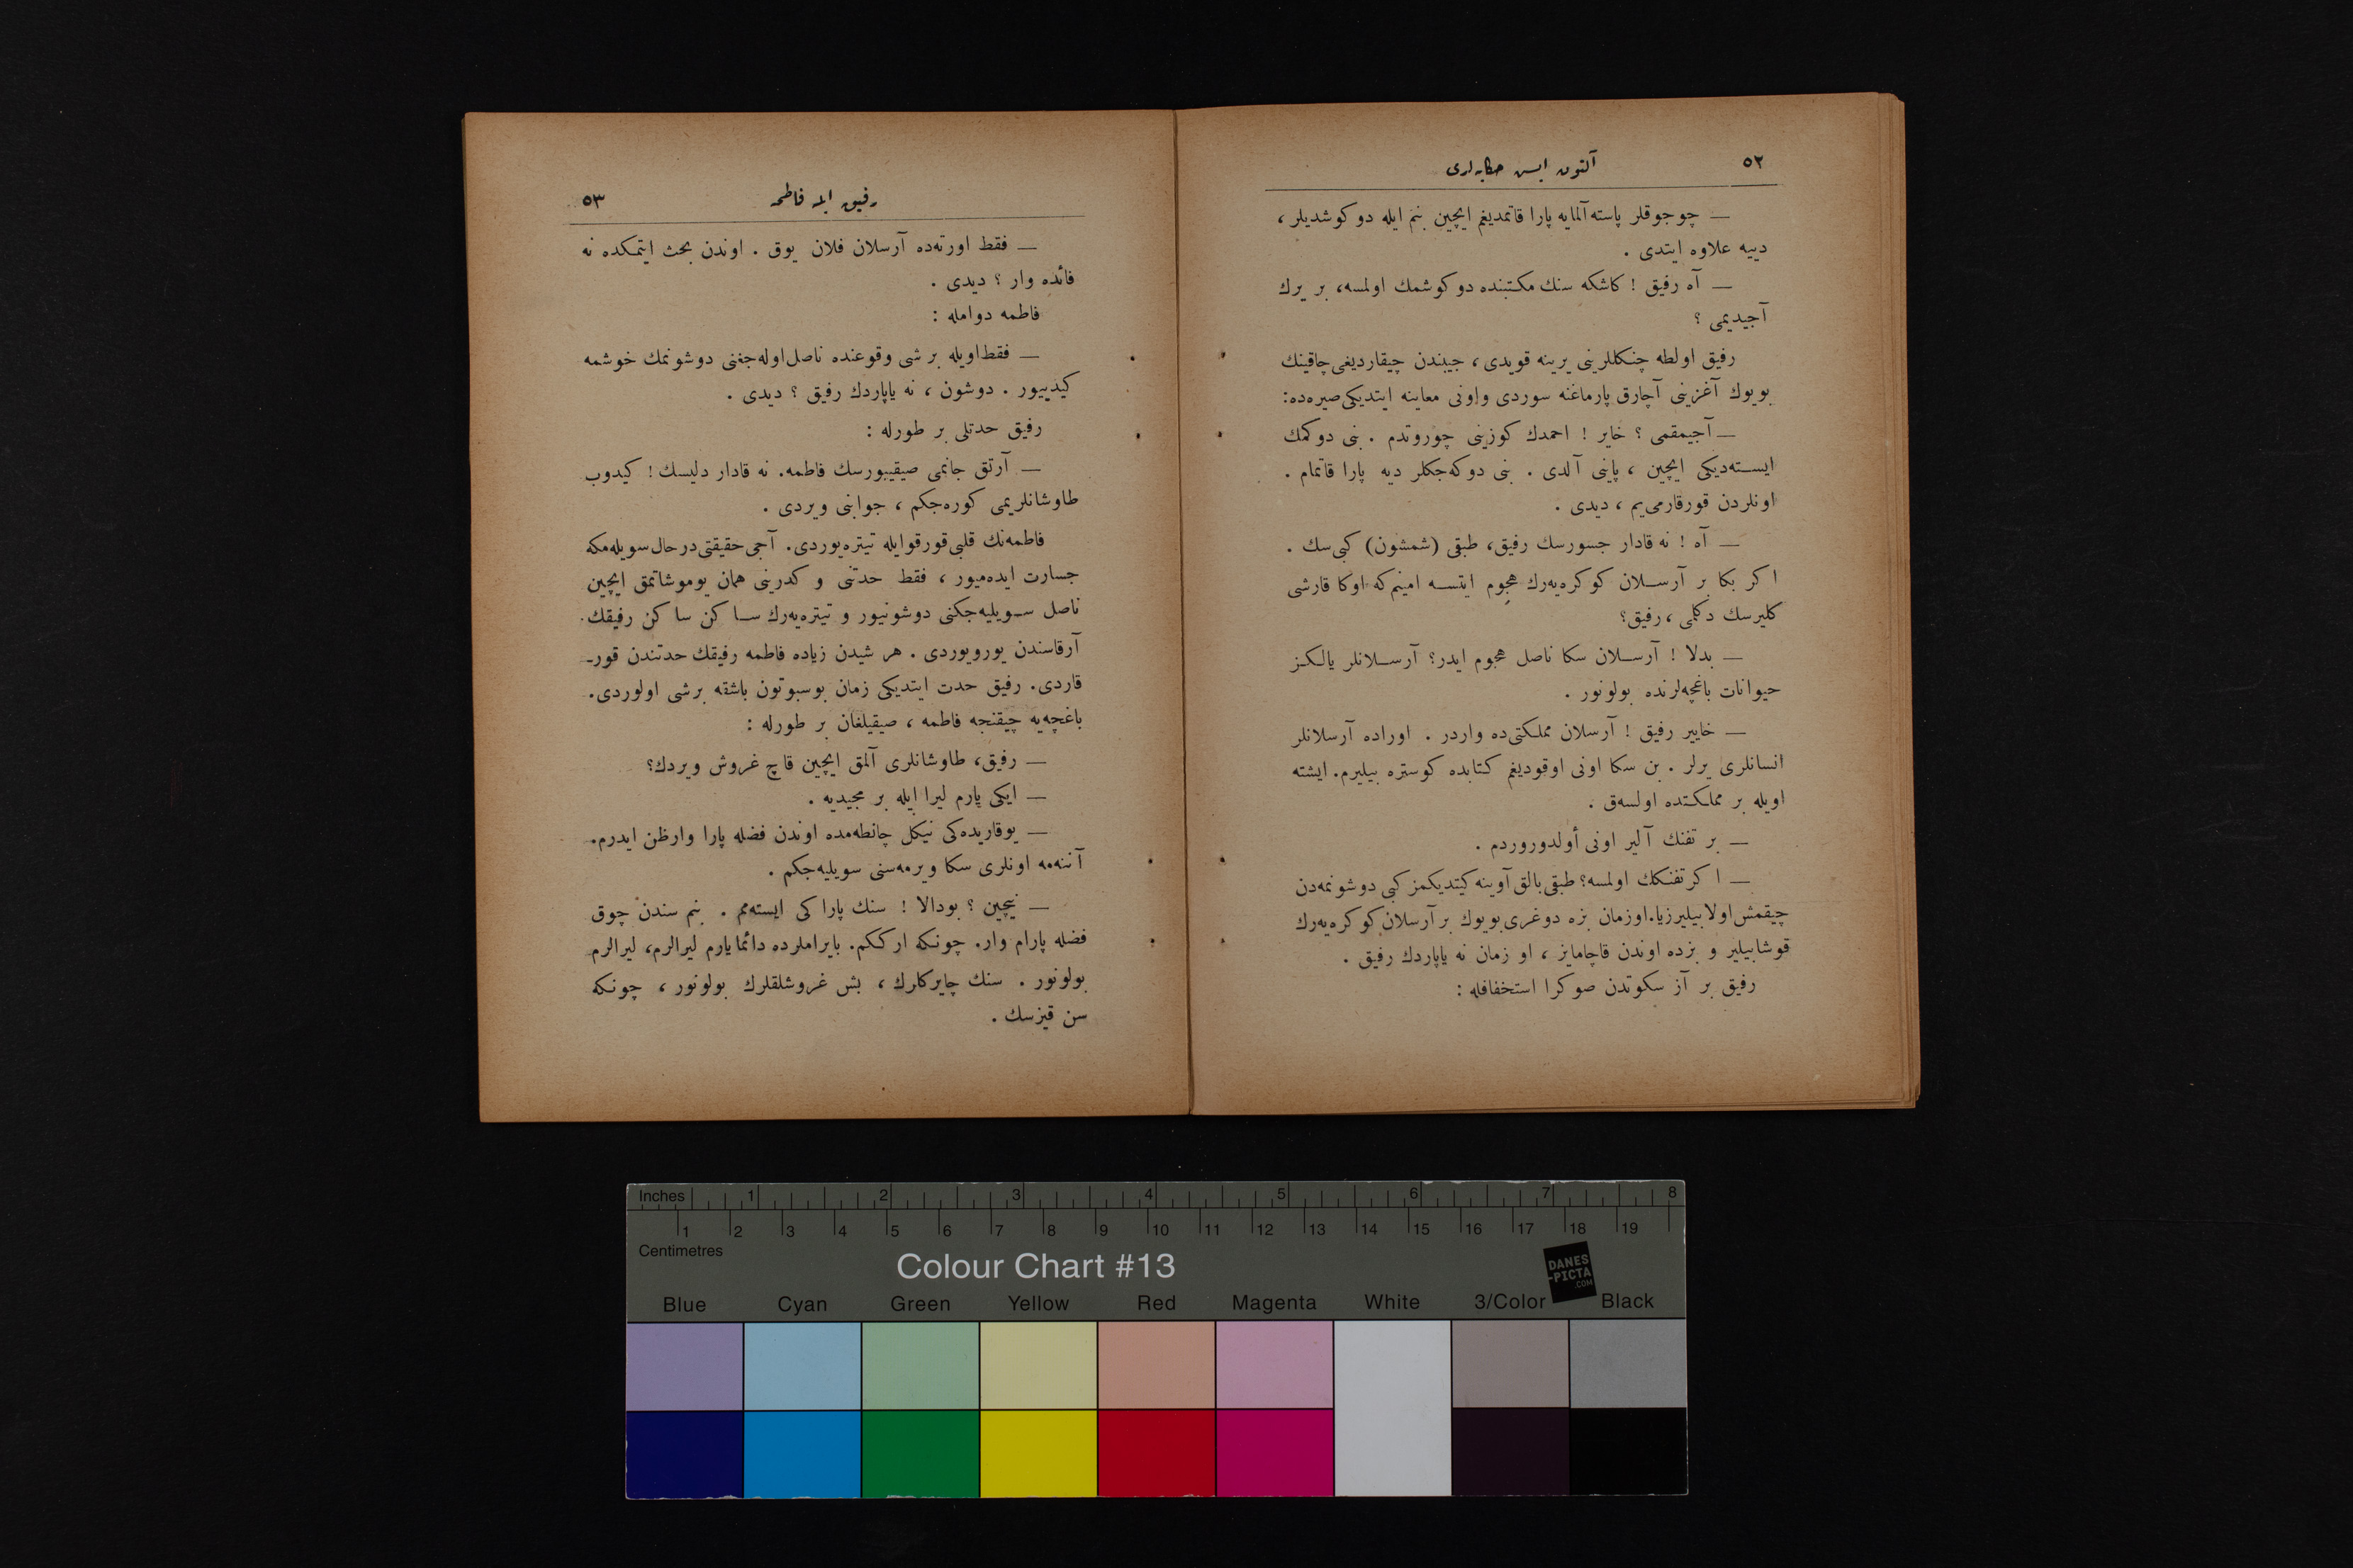 ٥٢
آلتون ایسن حکایه‌لری
— چوجوقلر پاسته آلمایه پارا قاتمدیغم ایچین بنم ایله دوکوشدیلر ،
دییه علاوه ایتدی .
— آه رفیق ! کاشکه سنك مکتبنده دوکوشمك اولمسه، بر یرك
آجیدیمی ؟
رفیق اولطه چنکللرینی یرینه قویدی ، جیبندن چیقاردیغی چاقینك
بویوك آغزینی آچارق پارماغنه سوردی واونی معاینه ایتدیکی صیره‌ده:
— آجیمقمی ؟ خایر ! احمدك کوزینی چوروتدم . بنی دوکمك
ایسته‌دیکی ایچین ، پاینی آلدی . بنی دوکه‌جکلر دیه پارا قاتمام .
اونلردن قورقارمی‌یم ، دیدی .
— آه ! نه قادار جسورسك رفیق، طبقی (شمشون) کبی‌سك .
اکر بکا بر آرسلان کوکره‌یه‌رك هجوم ایتسه امینم‌که اوکا قارشی
کلیرسك دکلمی ، رفیق؟
— بدلا ! آرسلان سکا ناصل هجوم ایدر؟ آرسلانلر یالکز
حیوانات باغچه‌لرنده بولونور .
— خاییر رفیق ! آرسلان مملکتی‌ده واردر . اوراده آرسلانلر
انسانلری یرلر . بن سکا اونی اوقودیغم کتابده کوستره بیلیرم. ایشته
اویله بر مملکتده اولسه‌ق .
— بر تفنك آلیر اونی أولدوروردم .
— اکر تفنکك اولمسه؟ طبقی بالق آوینه کیتدیکمز کبی دوشونمه‌دن
چیقمش اولابیلیرزیا. اوزمان بزه دوغری بویوك بر آرسلان کوکره‌یه‌رك
قوشابیلیر و بزده اوندن قاچامایز ، او زمان نه یاپاردك رفیق .
رفیق بر آز سکوتدن صوکرا استخفافله :
رفیق ایله فاطمه
٥٣
— فقط اورته‌ده آرسلان فلان یوق . اوندن بحث ایتمکده نه
فائده وار ؟ دیدی .
فاطمه دوامله :
— فقط اویله بر شی وقوعنده ناصل اوله‌جغنی دوشونمك خوشمه
کیدییور . دوشون ، نه یاپاردك رفیق ؟ دیدی .
رفیق حدتلی بر طورله :
— آرتق جانمی صیقییورسك فاطمه. نه قادار دلیسك ! کیدوب
طاوشانلریمی کوره‌جکم ، جوابنی ویردی .
فاطمه‌نك قلبی قورقو ایله تیتره‌یوردی. آجی حقیقتی درحال سویله‌مکه
جسارت ایده‌میور ، فقط حدتنی و کدرینی همان یوموشاتمق ایچین
ناصل سویلیه‌جکنی دوشونیور و تیتره‌یه‌رك ساکن ساکن رفیقك
آرقاسندن یورویوردی . هر شیدن زیاده فاطمه رفیقك حدتندن قور-
قاردی. رفیق حدت ایتدیکی زمان بوسبوتون باشقه برشی اولوردی.
باغچه‌یه چیقنجه فاطمه ، صیقیلغان بر طورله :
— رفیق، طاوشانلری آلمق ایچین قاچ غروش ویردك؟
— ایکی یارم لیرا ایله بر مجیدیه .
— یوقاریده‌کی نیکل چانطه‌مده اوندن فضله پارا وارظن ایدرم.
آننه‌مه اونلری سکا ویرمه‌سنی سویلیه‌جکم .
— نیچین ؟ بودالا ! سنك پاراکی ایسته‌مم . بنم سندن چوق
فضله پارام وار. چونکه ارککم. بایراملرده دائما یارم لیرالرم، لیرالرم
بولونور . سنك چایرکارك ، بش غروشلقلرك بولونور ، چونکه
سن قیزسك .
Inches 1 2 3 4 5 6 7 8
1 2 3 4 5 6 7 8 9 10 11 12 13 14 15 16 17 18 19
Centimetres
Colour Chart #13
DANES
-PICTA
.COM
Blue Cyan Green Yellow Red Magenta White 3/Color Black